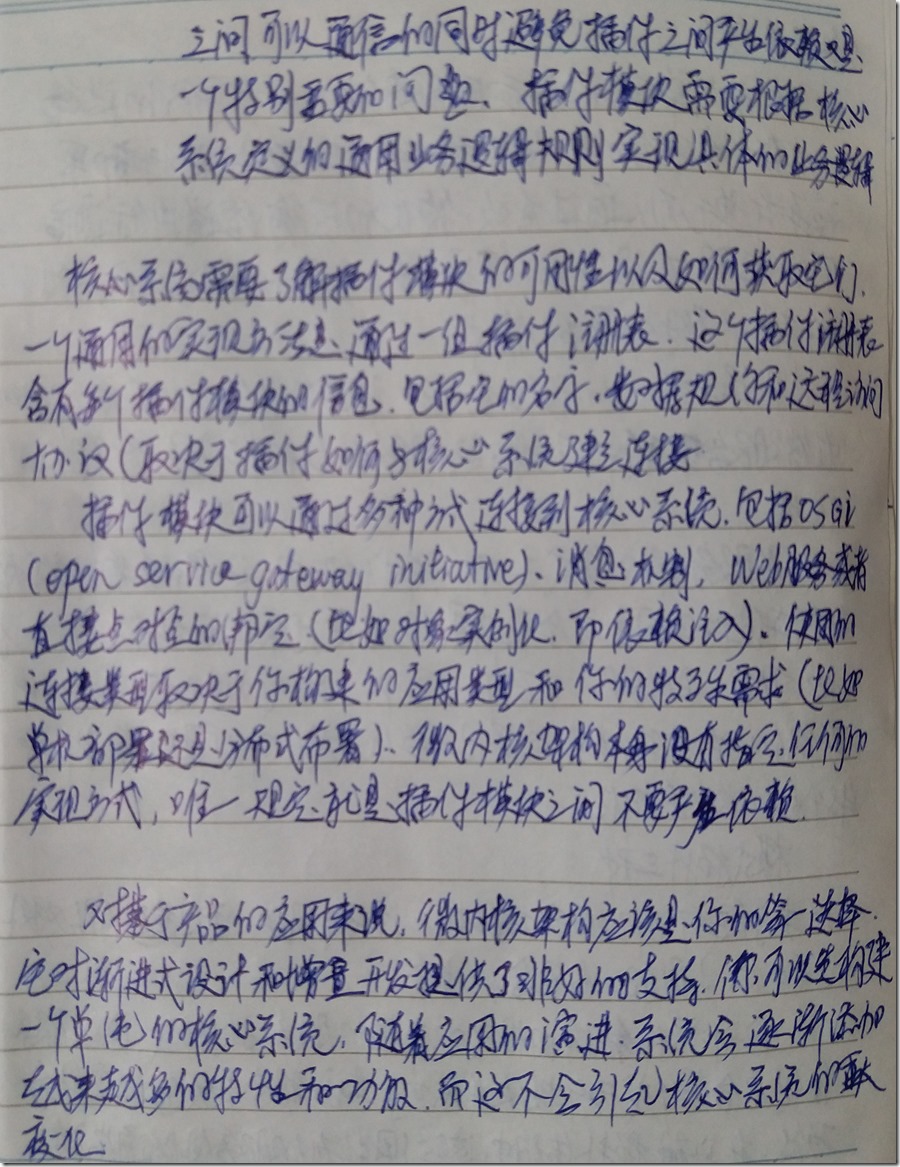 之间可以通信的同时避免插件之间产生依赖又是
一个特别重要的问题、插件模块需要根据核心
系统定义的通用业务逻辑规则实现具体的业务逻辑
核心系统需要了解插件模块的可用性以及如何获取它们.
一个通用的实现方法是通过一组插件注册表.这个插件注册表
含有每个插件模块的信息.包括它的名字、数据规约和远程访问
协议(取决于插件如何与核心系统建立连接
插件模块可以通过多种方式连接到核心系统.包括OSGi
(open service gateway initiative)、消息机制,Web服务或者
直接点对点的绑定(比如对象实例化.即依赖注入)。使用的
连接类型取决于你构建的应用类型和你的特殊需求(比如
单机部署还是分布式布署)、微内核架构本身没有指定任何的
实现方式,唯一规定就是插件模块之间不要产生依赖.
对基于产品的应用来说,微内核架构应该是你的第一选择.
它对渐进式设计和增量开发提供了非好的支持.你可以先构建
一个单纯的核心系统,随着应用的演进.系统会逐渐添加
越来越多的特性和功能.而这不会引起核心系统的重大
变化